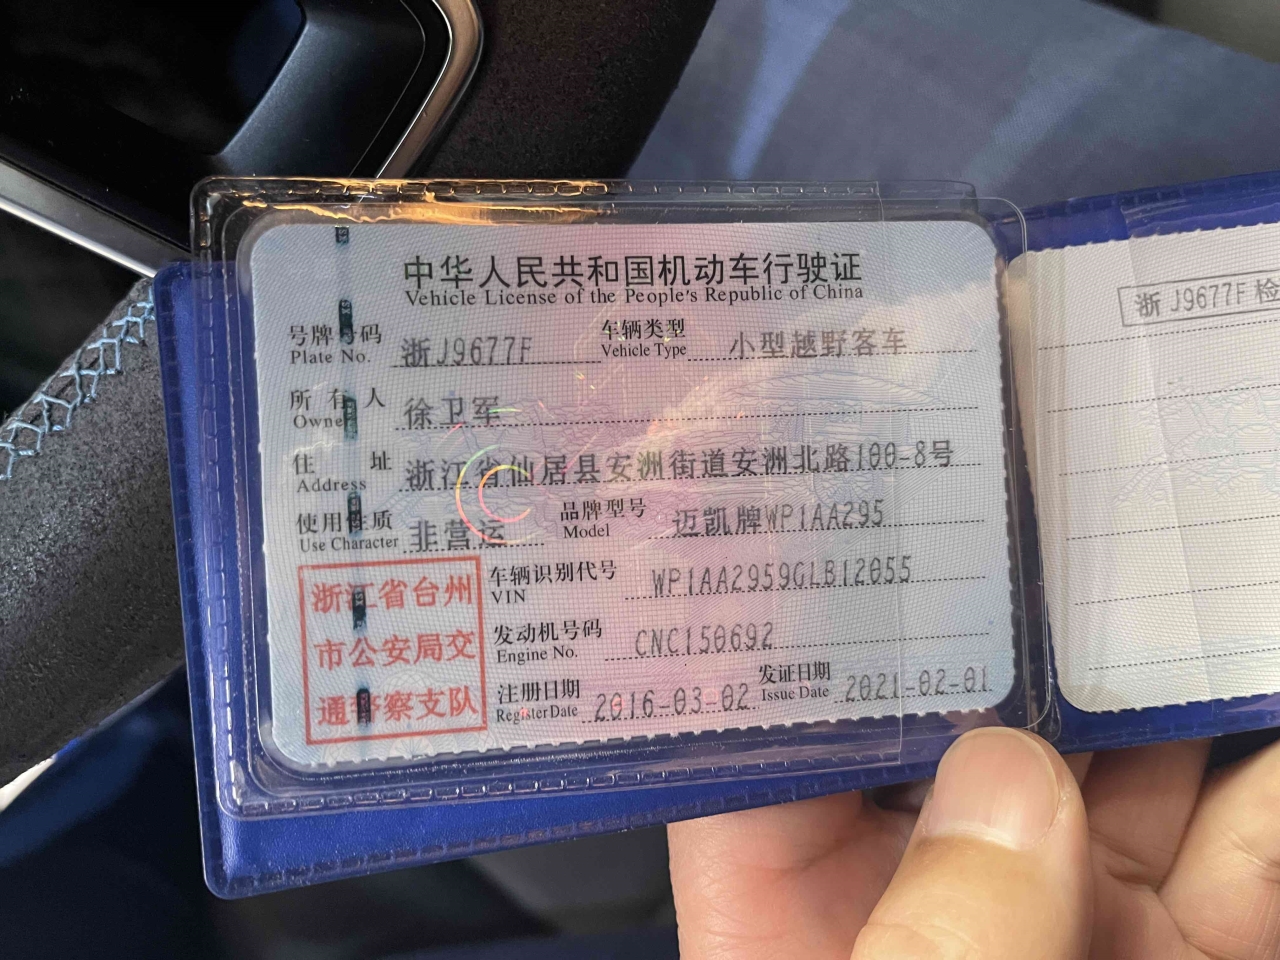 中华人民共和国机动车行驶证
Vehicle License of the People's Republic of China
号牌号码 浙J9677F 车辆类型 小型越野客车
Plate No. Vehicle Type
所有人 徐卫军
Owner
住址 浙江省仙居县安洲街道安洲北路100-8号
Address
使用性质 非营运 品牌型号 迈凯牌WP1AA295
Use Character Model
浙江省台州
市公安局交
通警察支队
车辆识别代号 WP1AA2959GLB12055
VIN
发动机号码 CNC150692
Engine No.
注册日期 2016-03-02 发证日期 2021-02-01
Register Date Issue Date
浙J9677F 检